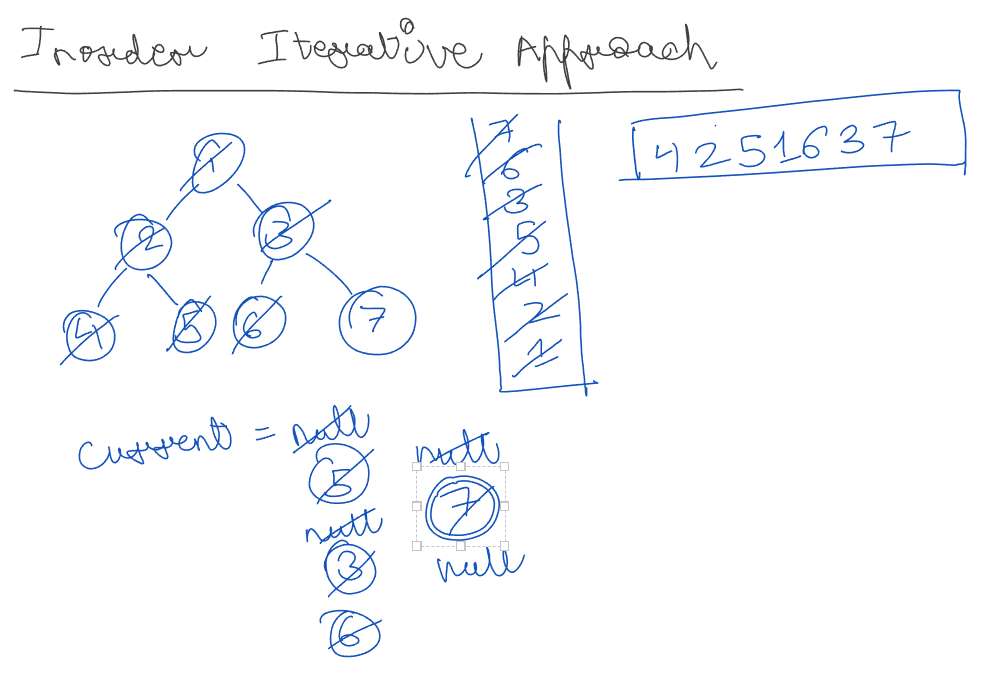 Inorder Iterative Approach
4 2 5 1 6 3 7
1
2 3
4 5 6 7
7
6
3
5
4
2
1
current = null
5
null
3
6
null
7
null